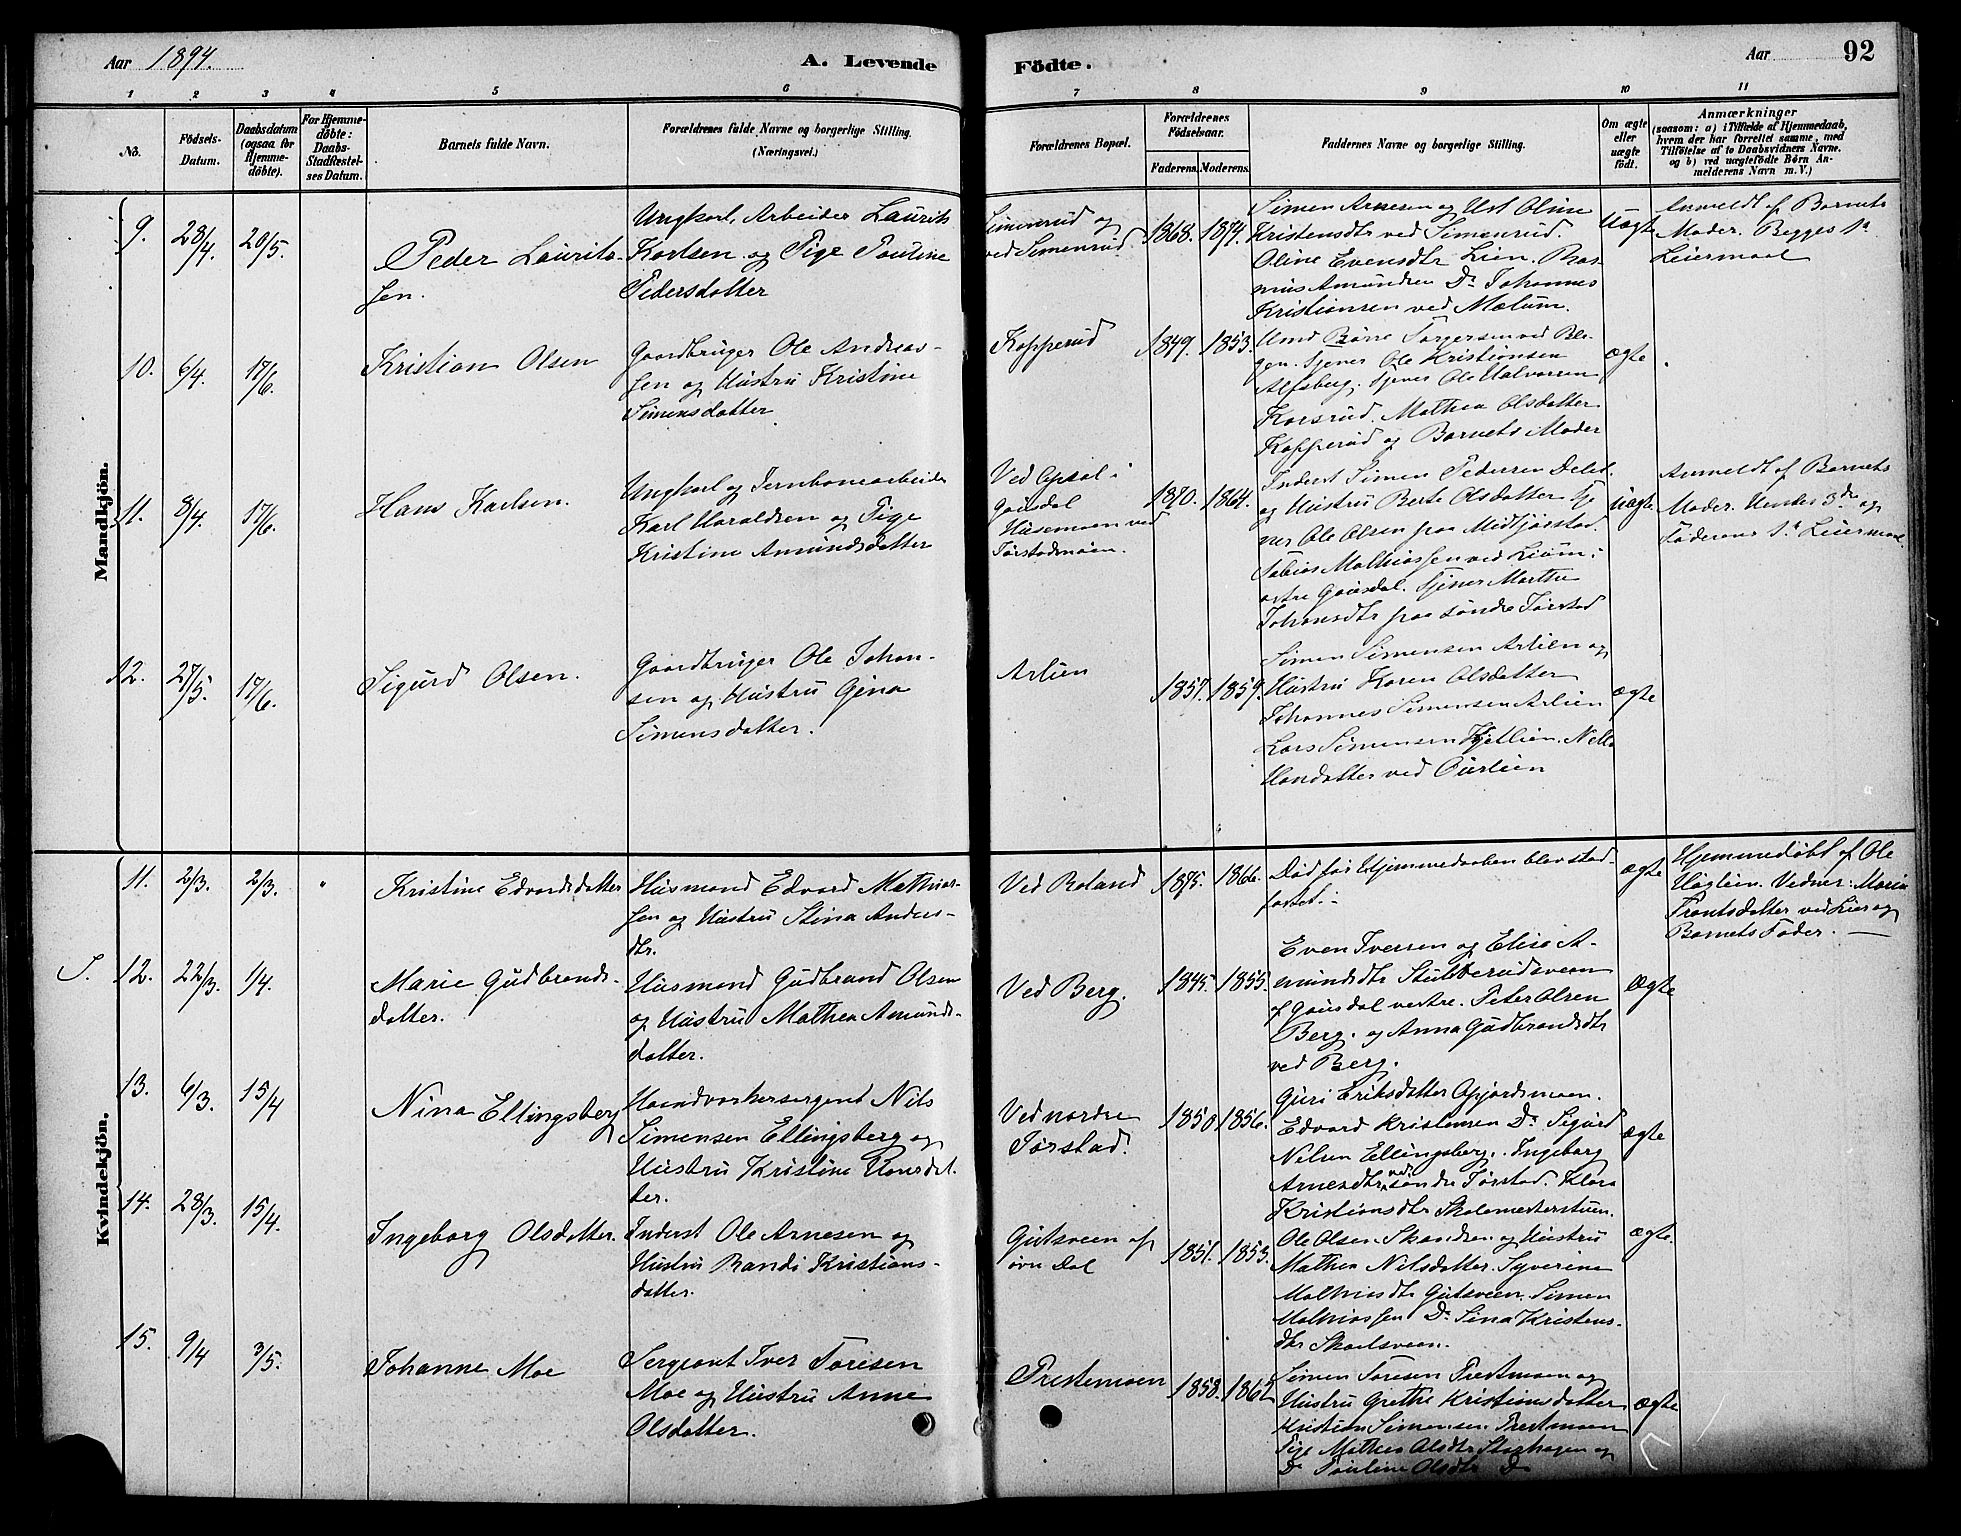 Aar 1894.
A. Levende
Födte.
Aar
92
1 2 3 4 5 6 7 8 9 10 11
No.
Födsels-
Datum.
Daabsdatum
(ogsaa for
Hjemme-
døbte).
For Hjemme-
døbte:
Daabs-
Stadfestel-
ses Datum.
Barnets fulde Navn.
Forældrenes fulde Navne og borgerlige Stilling.
(Næringsvei.)
Forældrenes Bopæl.
Forældrenes
Fødselsaar.
Faderens. Moderens.
Faddernes Navne og borgerlige Stilling.
Om ægte
eller
uægte
født.
Anmærkninger
(saasom: a) i Tilfælde af Hjemmedaab,
hvem der har forrettet samme, med
Tilføielse af to Daabsvidners Navne.
og b) ved uægtefödte Börn An-
melderens Navn m. V.)
Mandkjön.
9.
28/4
20/5.
Peder Laurits-
sen.
Ungkarl, Arbeider Laurits
Karlsen og Pige Pouline
Pedersdatter
Simenrud og
ved Simenrud.
1868. 1874.
Simen Arnesen og Ust Oline
Kristensdtr ved Simenrud.
Oline Evensdtr Lien. Ras-
mus Amundsen Do Johannes
Kristiansen ved Mælum.
Uægte
Anmeldt af Barnets
Moder. Begges 1ste
Leiermaal
10.
6/4.
17/6.
Kristian Olsen
Gaardbruger Ole Andreas-
sen og Hustru Kristine
Simensdatter
Kopperud
1849. 1853.
Børre Torgersen ved
Tjener Ole Kristiansen
Alfsberg. Tjener Ole Halvorsen
Korsrud. Mathea Olsdatter
Kopperud og Barnets Moder
ægte
11.
8/4.
17/6.
Hans Karlsen.
Ungkarl og Jernbanearbeider
Karl Haraldsen og Pige
Kristine Amundsdatter
Ved i
Gausdal
Husemoen ved
Tørstadmoen.
1870. 1864.
Inderst Simen Pedersen
og Hustru Berte Olsdatter Tje
ner Ole Olsen fra Midtjørstad.
Tobias Mathiassen ved Lium i
østre Gausdal. Tjener Marthe
Johansdtr fraa søndre Tørstad
uægte
Anmeldt af Barnets
Moder. Hendes 3die og
Faderens 1ste Leiermaal.
12.
27/5.
17/6.
Sigurd Olsen.
Gaardbruger Ole Johan-
sen og Hustru Gina
Simensdatter.
Arlien
1857. 1859.
Simen Simensen Arlien og
Hustru Karen Olsdatter
Johannes Simensen Arlien
Lars Simensen Kjetlien.
Hansdatter ved Aurlien
ægte
Kvindekjön.
11.
2/3.
2/3.
Kristine Edvardsdatter
Husmand Edvard Mathias-
sen og Hustru Stina Anders-
dtr.
Ved Roland
1875. 1866.
Død før Hjemmedaaben blev stad-
fæstet.
ægte
Hjemmedøbt af Ole
Høglien. Vidner: Marie
Frantsdatter ved Lier og
Barnets Fader.
S.
12.
22/3.
1/4.
Marie Gudbrands-
datter.
Husmand Gudbrand Olsen
og Hustru Mathea Amunds-
datter.
Ved Berg.
1845. 1855.
Even Iversen og Elise A-
mundsdtr Stubberudsveen
af Gausdal vestre. Peter Olsen
Berg. og Anna Gudbrandsdtr
ved Berg.
Ægte
13.
6/3.
15/4
Nina Ellingsberg
Haandverkersergent Nils
Simensen Ellingsberg og
Hustru Kristine Hansdat-
ter.
Ved nordre
Tørstad.
1850 1856.
Guri Eriksdatter
Edvard Kristensen Do Sigurd
Nilsen Ellingsberg. Ingeborg
Arnesdtr ved søndre Tørstad. Klara
Kristiansdtr Skolemesterstuen.
ægte
14.
28/3.
15/4.
Ingeborg Olsdatter.
Inderst Ole Arnesen og
Hustru Randi Kristians-
datter.
Gutsveen af
øvre Dal
1851. 1853.
Ole Olsen og Hustru
Mathea Nilsdatter. Syverine
Mathiasdtr Gutsveen. Simen
Mathiassen Do Sina Kristens-
dtr
ægte.
15.
9/4
3/5.
Johanne Moe
Sergeant Iver Toresen
Moe og Hustru Anne
Olsdatter.
Prestemoen
1858. 1862
Simen Toresen Prestmoen og
Hustru Grethe Kristiansdatter
Kristian Simensen Prestmoen
Pige Mathea Olsdtr Storhagen og
Do Pauline Olsdtr Do
ægte